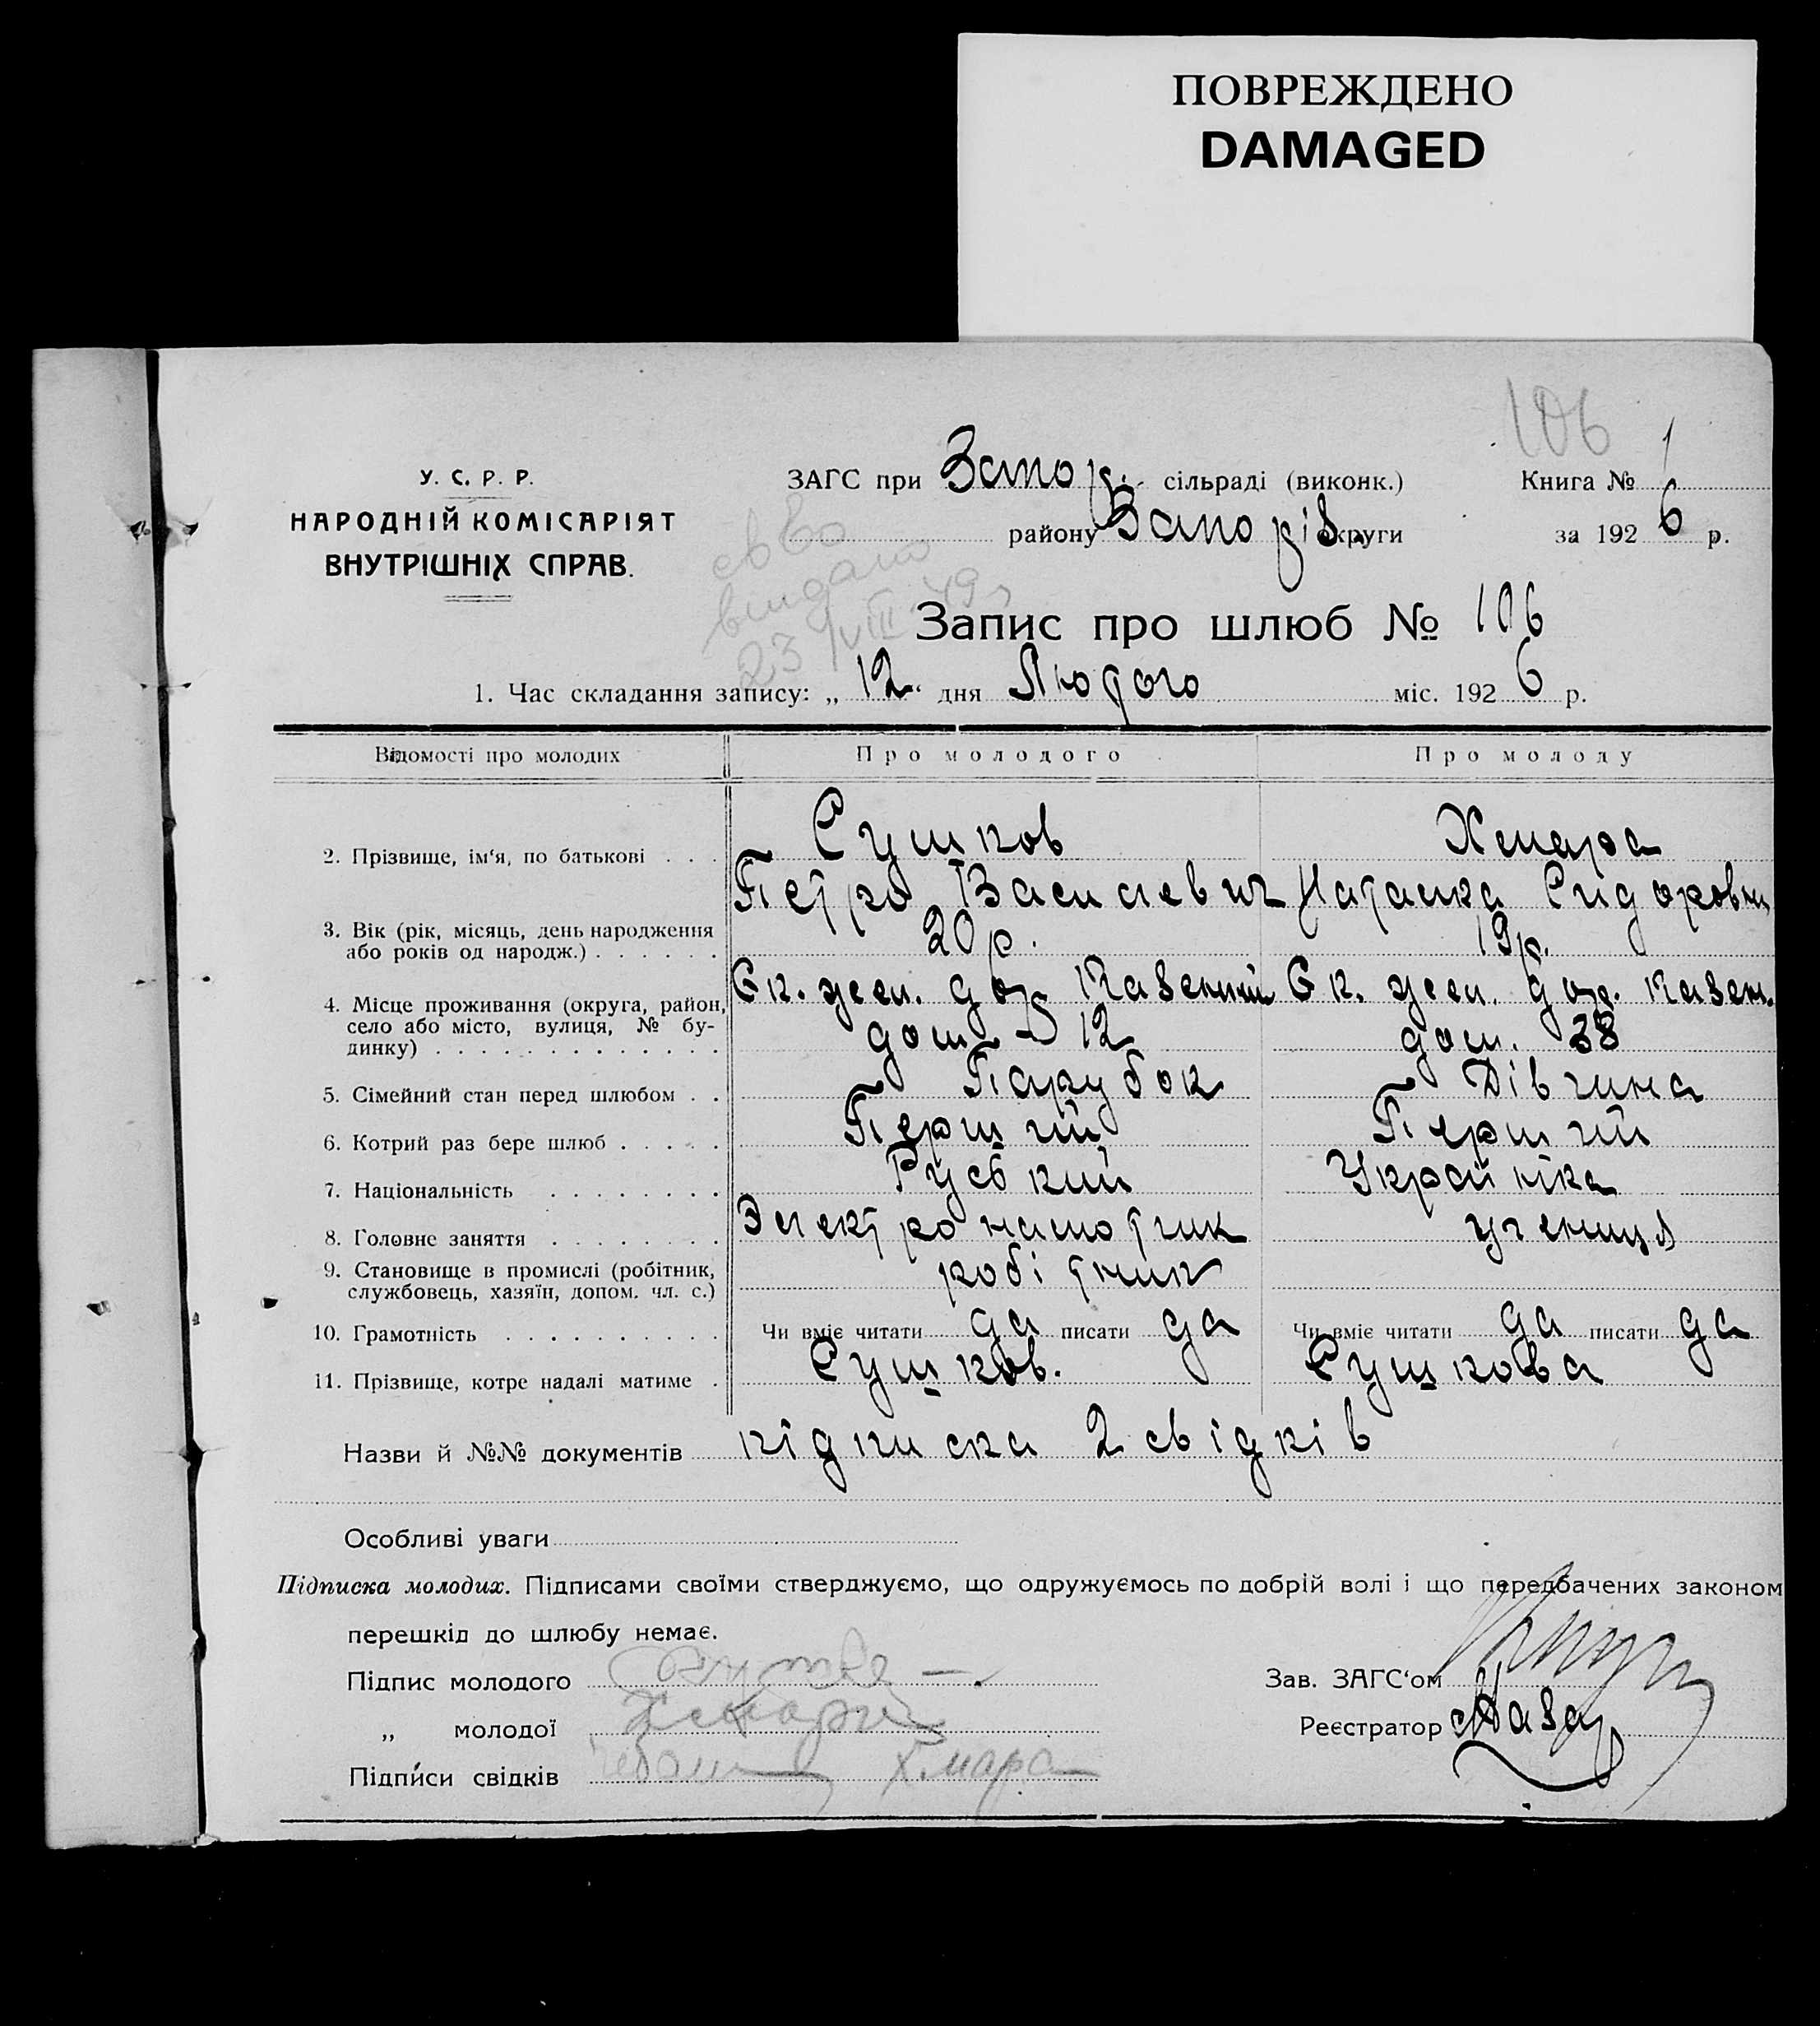 ПОВРЕЖДЕНО
DAMAGED
106
У. С. Р. Р.
НАРОДНІЙ КОМІСАРІЯТ
ВНУТРІШНІХ СПРАВ.
ЗАГС при Запор. сільраді (виконк.)
району Запоріз. округи
Книга № 1
за 1926 р.
св во
видано
23/VIII 49 г
Запис про шлюб № 106
1. Час складання запису: „12“ дня Лютого міс. 1926 р.
Відомості про молодих Про молодого Про молоду
2. Прізвище, ім‘я, по батькові . . . Сушков Хмара
Петро Василевич Наталка Сидоровна
3. Вік (рік, місяць, день народження
або років од народж.) . . . . . . 20 р. 19 р.
4. Місце проживання (округа, район, Ек. жел. дор Казенний Ек. жел. дор. казен.
село або місто, вулиця, № бу-
динку) . . . . . . . . . . . . . дом 12 дом. 38
5. Сімейний стан перед шлюбом . . Парубок Дівчина
6. Котрий раз бере шлюб . . . . . Перший Перший
7. Національність . . . . . . . . Руський Українка
8. Головне заняття . . . . . . . . Электронамотчик учениця
9. Становище в промислі (робітник,
службовець, хазяїн, допом. чл. с.) робітник
10. Грамотність . . . . . . . . . . Чи вміє читати да писати да Чи вміє читати да писати да
11. Прізвище, котре надалі матиме . Сушков. Сушкова
Назви й №№ документів підписка 2 свідків
Особливі уваги
Підписка молодих. Підписами своїми стверджуємо, що одружуємось по добрій волі і що передбачених законом
перешкід до шлюбу немає.
Підпис молодого
„ молодої Хмара
Підписи свідків Хмара
Зав. ЗАГС‘ом
Реєстратор